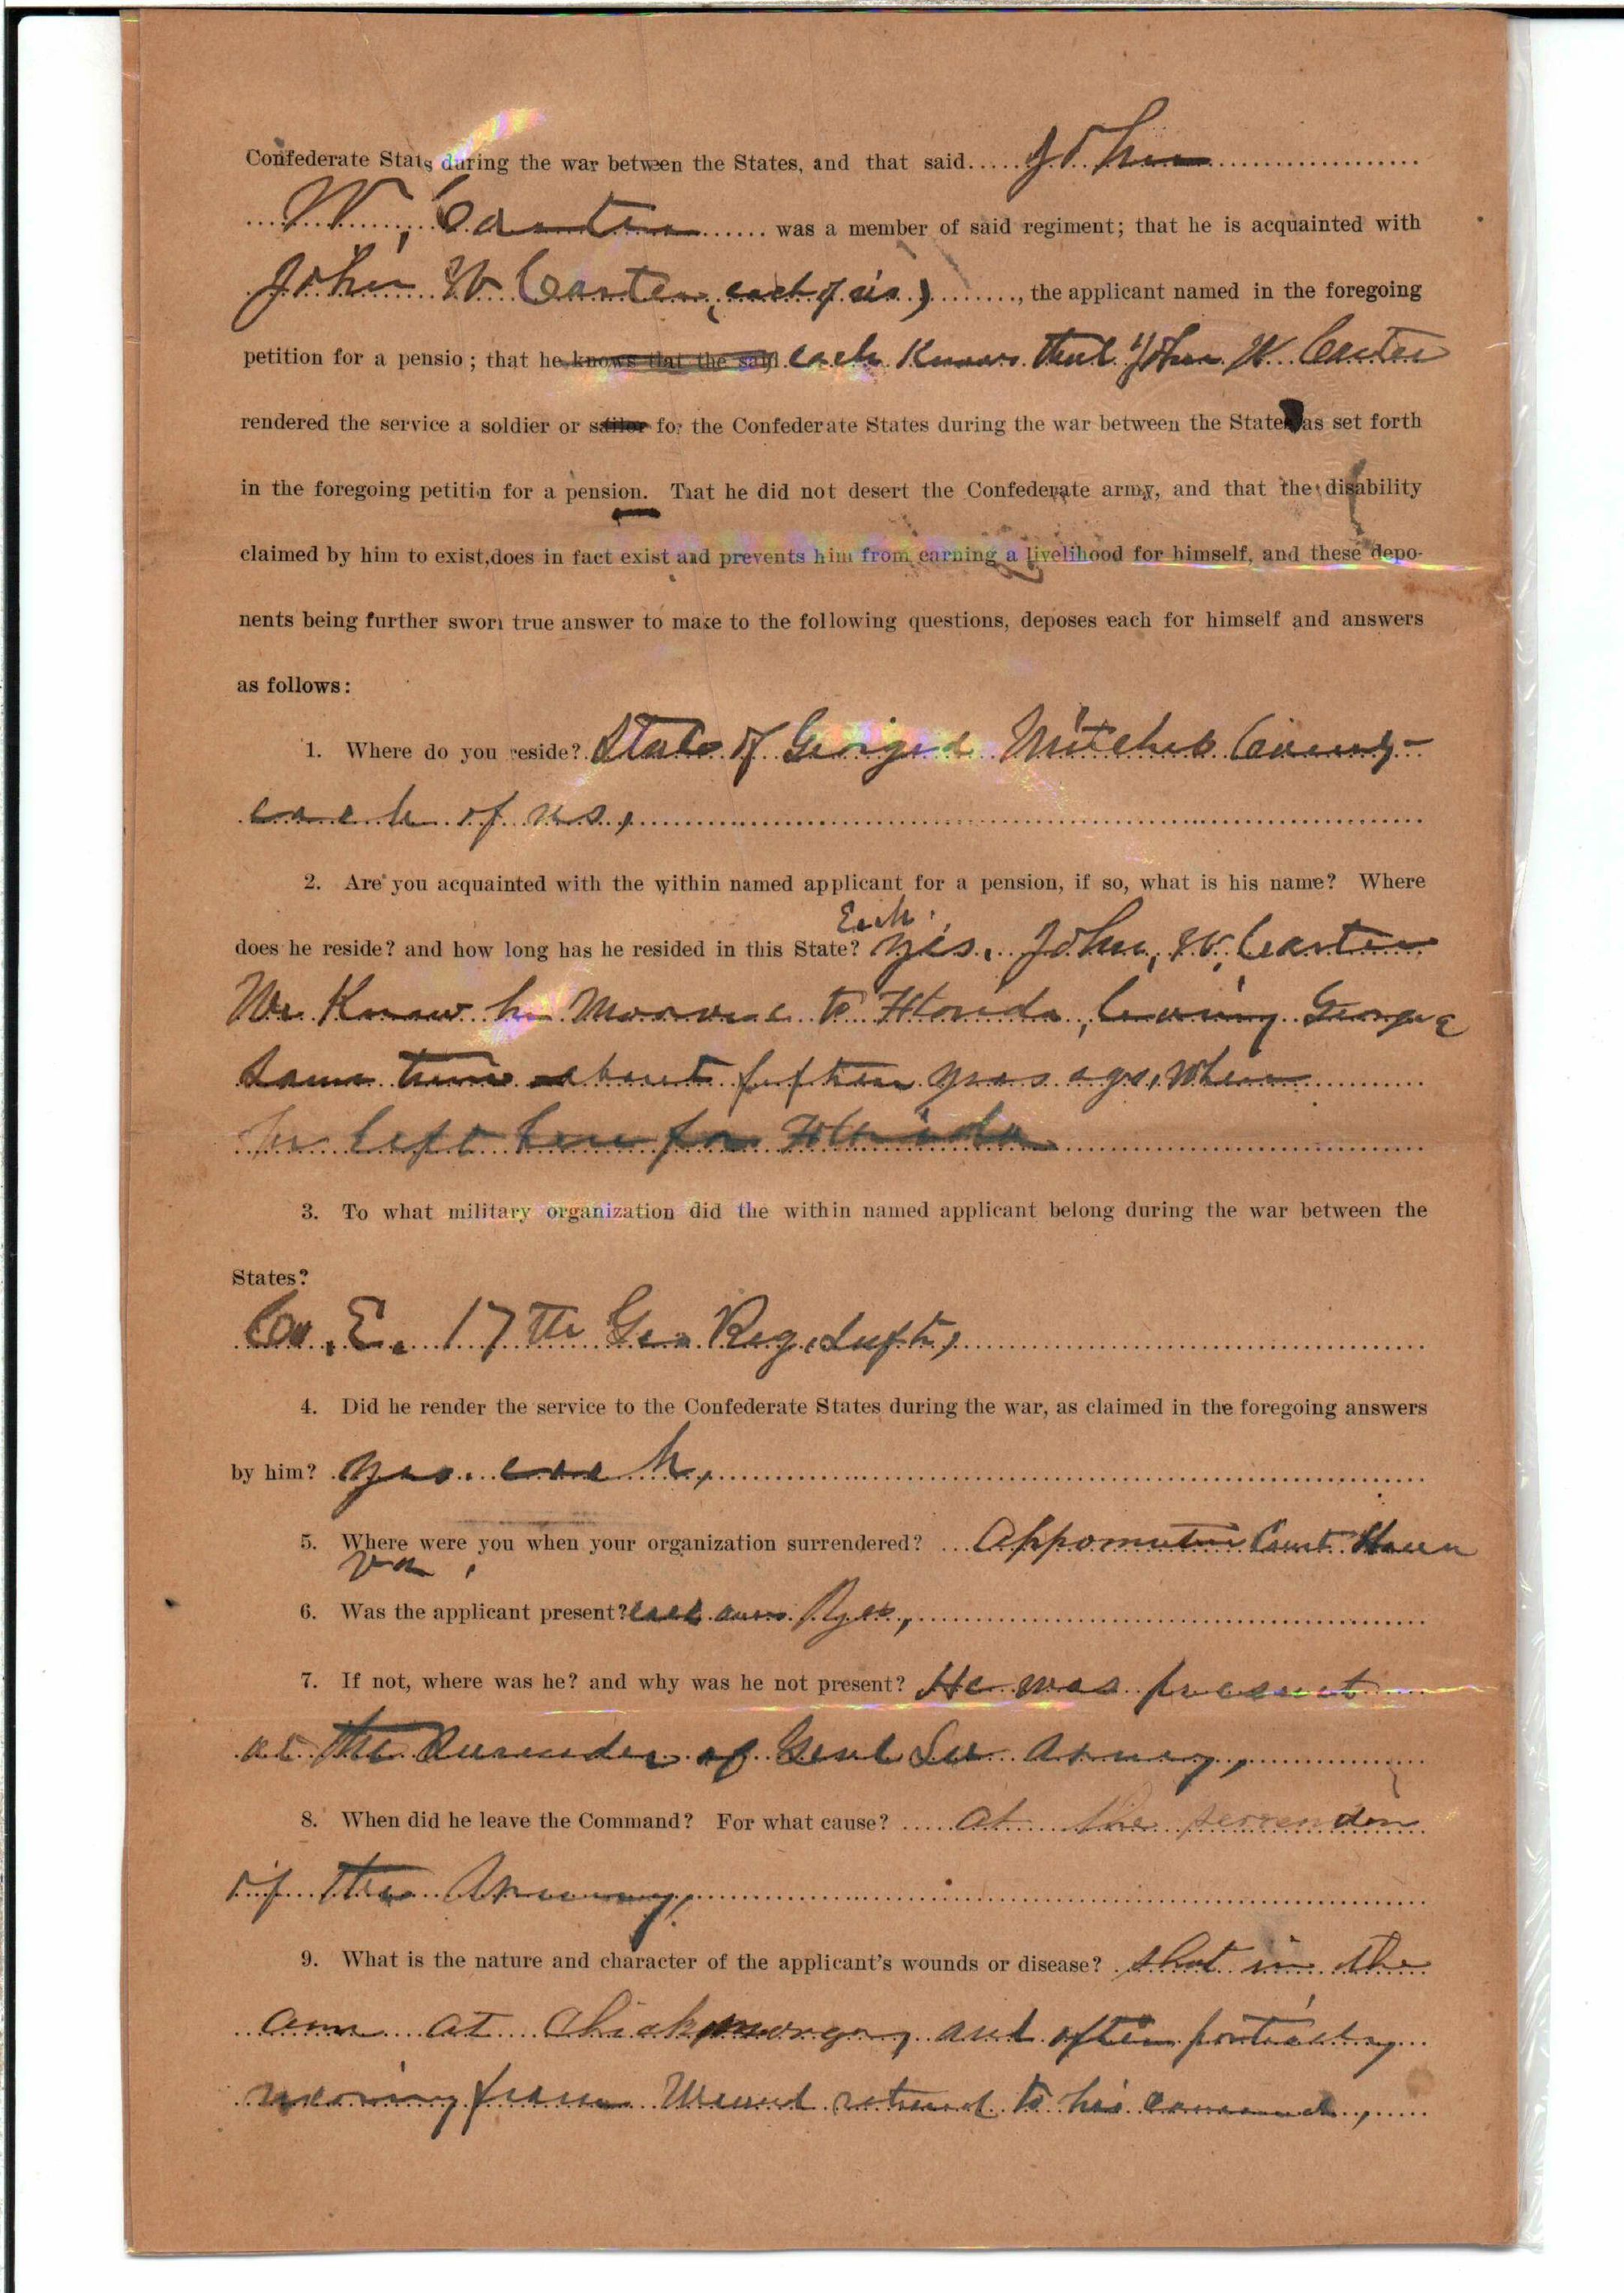 Confederate Stats during the war between the States, and that said John
W, Carter was a member of said regiment; that he is acquainted with
John W Carter, each of us) , the applicant named in the foregoing
petition for a pensio ; that he knows that the said each Knows that John W. Carter
rendered the service a soldier or sailor for the Confederate States during the war between the States as set forth
in the foregoing petitin for a pension. That he did not desert the Confederate army, and that the disability
claimed by him to exist,does in fact exist and prevents him from earning a livelihood for himself, and these depo-
nents being further sworn true answer to make to the following questions, deposes each for himself and answers
as follows:
1. Where do you reside? State of Georgia Mitchel County-
each of us,
2. Are you acquainted with the within named applicant for a pension, if so, what is his name? Where
Each
does he reside? and how long has he resided in this State? yes. John, W, Carter
We Know he to Florida, leaving Georga
Some time about fifteen years ago, When
he left here for Florida
3. To what military organization did the within named applicant belong during the war between the
States?
Co. E. 17th Geo Reg.
4. Did he render the service to the Confederate States during the war, as claimed in the foregoing answers
by him? yes. each,
5. Where were you when your organization surrendered? Appomattox Court House
Va,
6. Was the applicant present? each Yes,
7. If not, where was he? and why was he not present? He was present
at the Surender of Genl Lee Army,
8. When did he leave the Command? For what cause? at the serrender
of the Army,
9. What is the nature and character of the applicant's wounds or disease? shot in the
arm at and after
from Wound returned to his command,